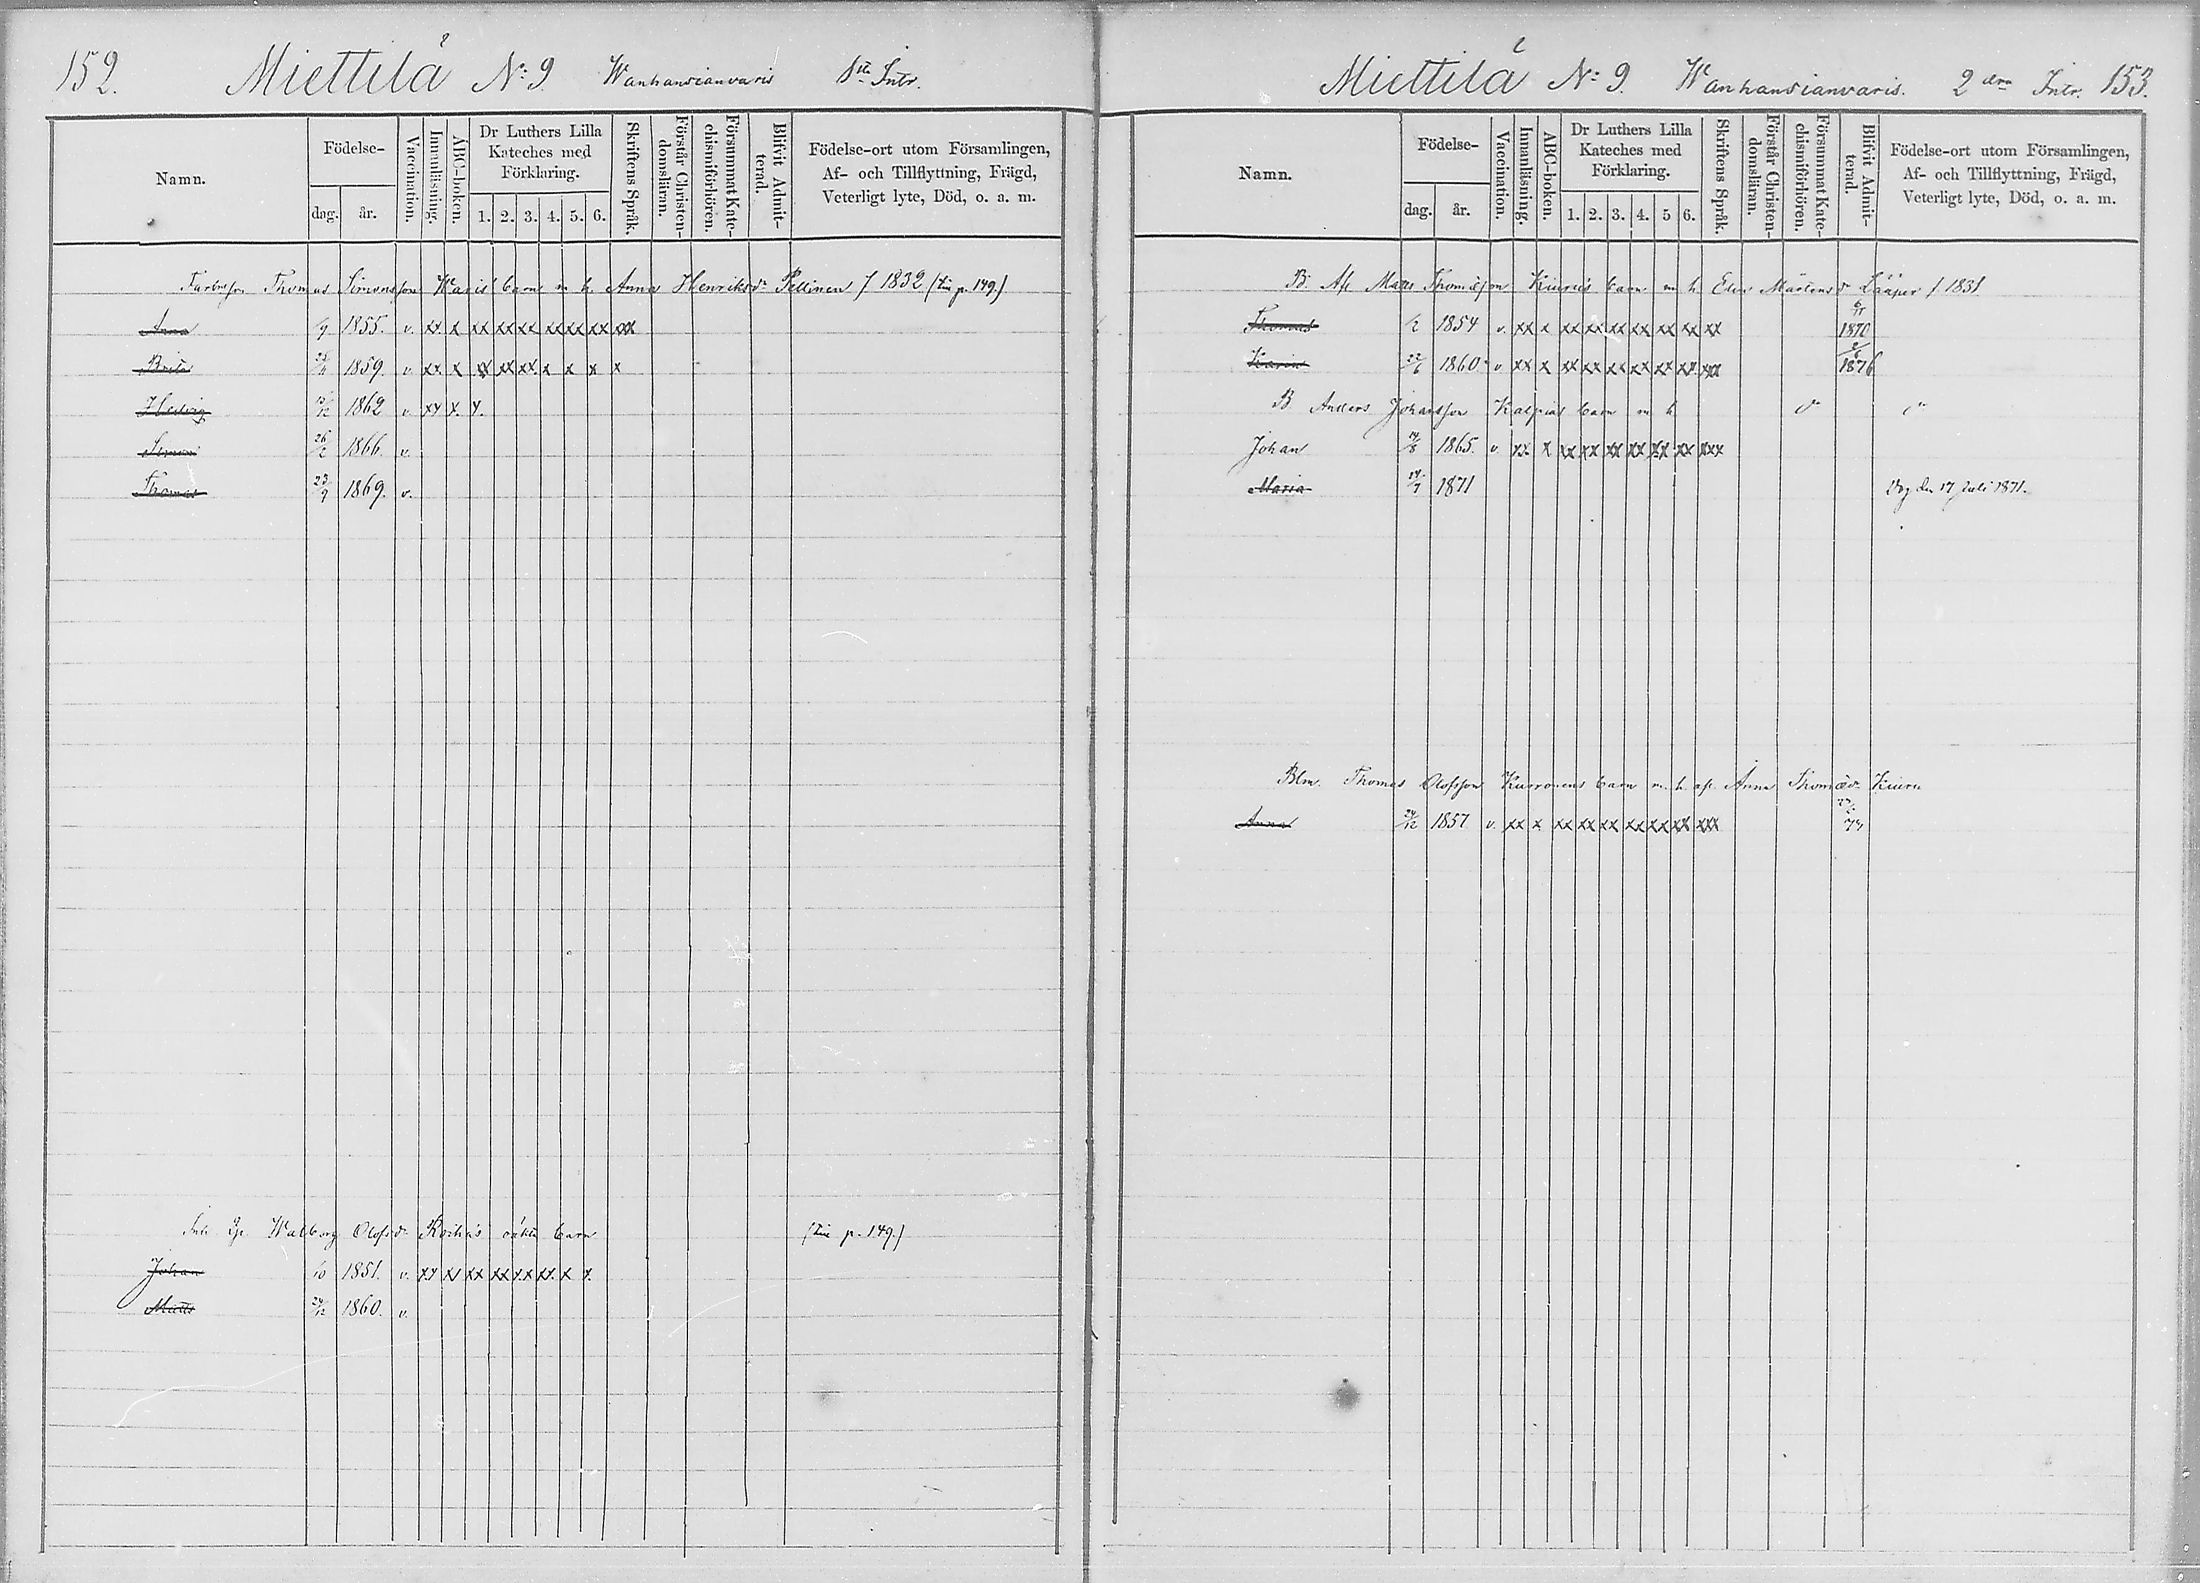 152. Miettilä N:o 9 Wanhansianvaris 1sta Intr.
Namn.
Födelse-
dag. år.
Vaccination.
Innanläsning.
ABC-boken.
Dr Luthers Lilla Kateches med Förklaring.
1. 2. 3. 4. 5. 6.
Skriftens Språk.
Förstår Christendomsläran.
Försummat Katechismiförhören.
Blifvit Admitterad.
Födelse-ort utom Församlingen,
Af- och Tillflyttning, Frägd,
Veterligt lyte, Död, o. a. m.
Thomas Simonsson Waris' barn m. h. Anna Henriksdr Pellinen f 1832 (p. 149.)
Anna 1855. v. xx x xx xx xx xx xx xx xxx
Brita 1859. v. xx x xx xx xx. x x x x
Hedvig 1862 v xx x. x.
Simon 26/2 1866. v.
Thomas 23/9 1869. v.
Walborg Olofsdr oäkta barn (p. 149.)
Johan 1851. v. xx xx xx xx xx xx. x x.
Matts 24/12 1860. v.
Miettilä N:o 9. Wanhansianvaris. 2dra Intr. 153.
Namn.
Födelse-
dag. år.
Vaccination.
Innanläsning.
ABC-boken.
Dr Luthers Lilla Kateches med Förklaring.
1. 2. 3. 4. 5 6.
Skriftens Språk.
Förstår Christendomsläran.
Försummat Katechismiförhören.
Blifvit Admitterad.
Födelse-ort utom Församlingen,
Af- och Tillflyttning, Frägd,
Veterligt lyte, Död, o. a. m.
B. Afl Matts Thomasson Kiurus barn m. h. Elin Mårtensdr Lääper f 1831
Thomas 1854 v. xx x xx xx xx xx xx xx xx 1870
Karin 22/6 1860 v xx x xx xx xx xx xx xx xxx 1876
B Anders Johansson Kalpias barn m h
Johan 14/8 1865. v. xx x xx xx xx xx xx xx xxx
Maria 14/7 1871 den 17 Juli 1871.
Blm. Thomas Olofsson Kurronens barn m. h. afl. Anna Thomædr Kiuru
Anna 24/12 1857 v. xx x xx xx xx xx xx xx xxx